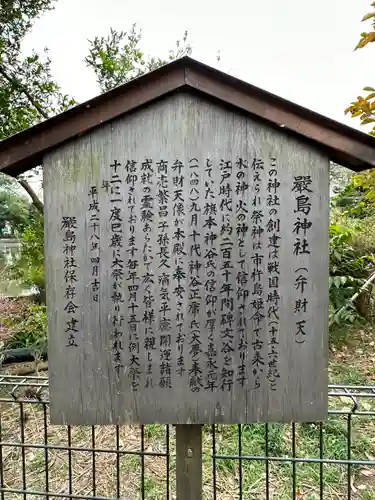 嚴島神社（弁財天）
この神社の創建は戦国時代（十五、六世紀）と
伝えられ祭神は市杵島姫命で古来から
水の神、火の神として信仰されております
江戸時代に約二百五十年間碑文谷を知行
していた旗本神谷氏の信仰が厚く嘉永元年
（一八四八）九月神谷寿平康氏（大夢）奉献の
弁財天像が本殿に奉安されております
商売繁昌子孫長久病気平癒開運諸願
成就の霊験あらたかで広く皆様に親しまれ
信仰されています毎年四月十五日に例大祭を
十二年に一度巳歳に大祭が執り行われます
平成二十八年四月吉日
嚴島神社保存会建立